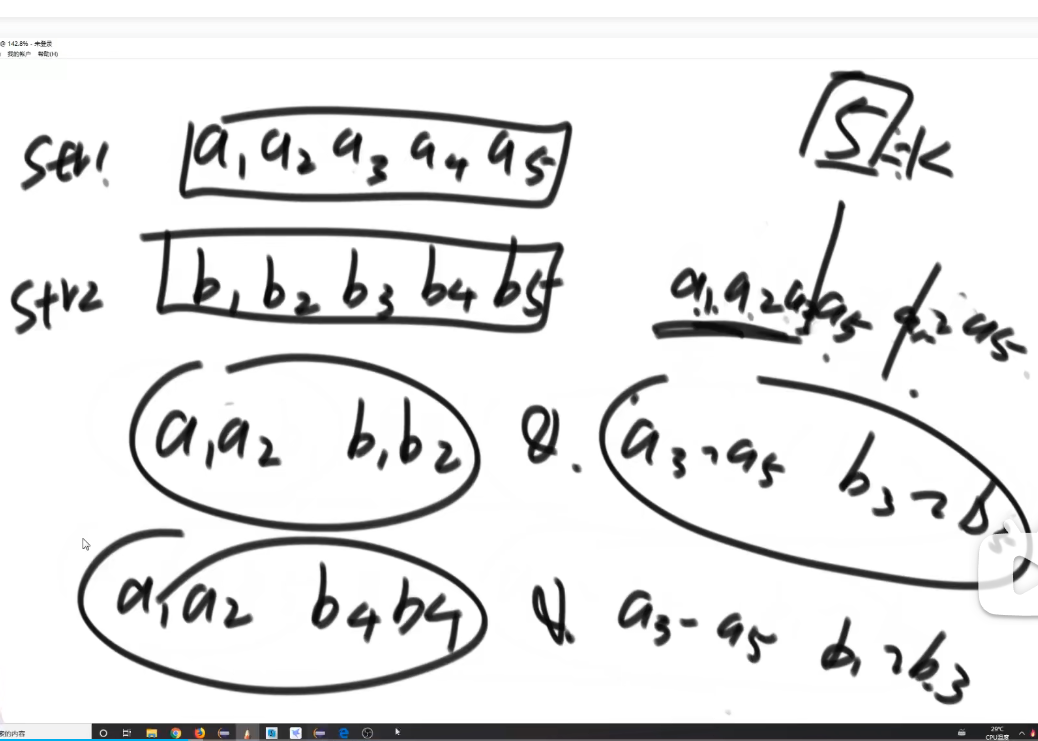 @ 142.8% - 未登录
我的帐户 帮助(H)
str1 a1 a2 a3 a4 a5
5=k
str2 b1 b2 b3 b4 b5
a1 a2 a3 a5 a5
a1a2 b1b2 a3~a5 b3~b5
a1a2 b4b4 a3-a5 b1~b3
索的内容
29℃
CPU温度